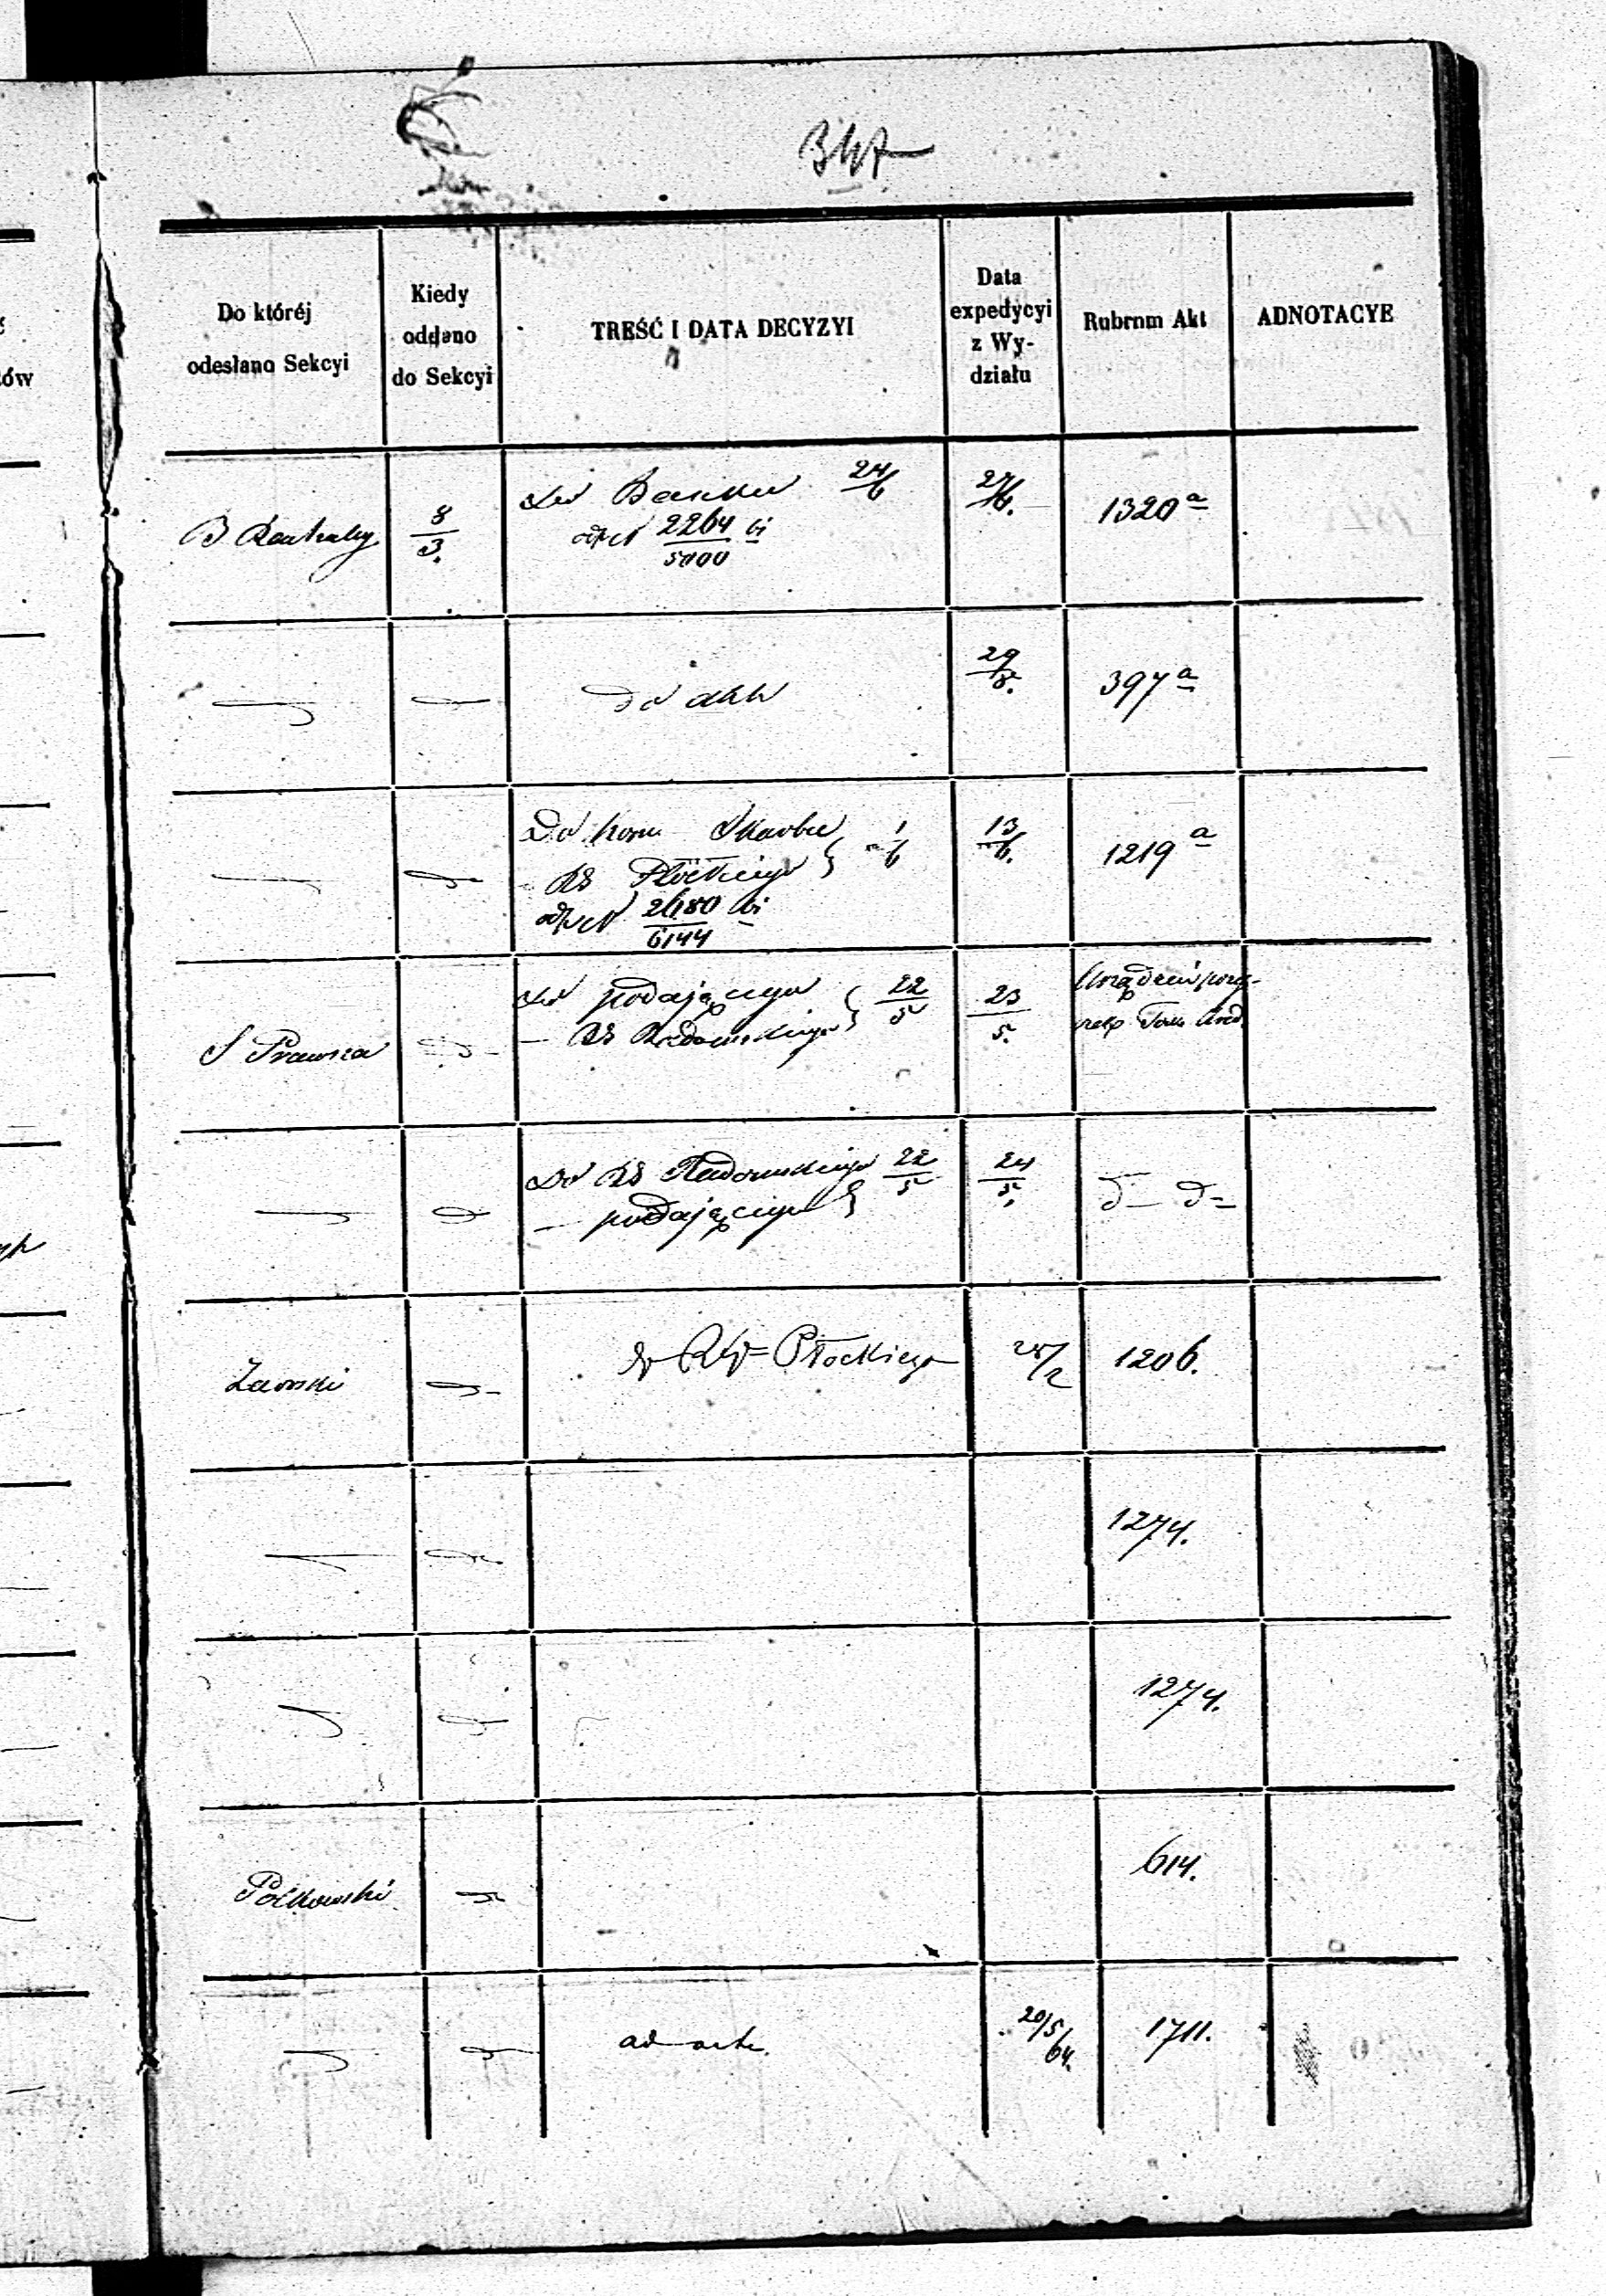 347
Do któréj
odesłano Sekcyi
Kiedy
oddano
do Sekcyi
TREŚĆ I DATA DECYZYI
Data
expedycyi
z Wy-
działu
Rubrum Akt
ADNOTACYE
ów
B Kontroley
8/3.
Do Banku 24/6
odp N 2264/5000 bi
27/6.
1320 a
do akt
29/5.
397 a
Do Kom Skarbu
RG Płockiego } 1/6
odp N 2680/6144 bi
13/6.
1219 a
S Prawna
Do podającego
— RG Radomskiego } 22/5
23/5.
Do RG Radomskiego 22/5
— podającego }
24/5.
d— d—
Zaorski
do RG Płockiego
25/2
1206.
1274.
1274.
Połkowski
614.
ad acta.
20/5/64.
1711.